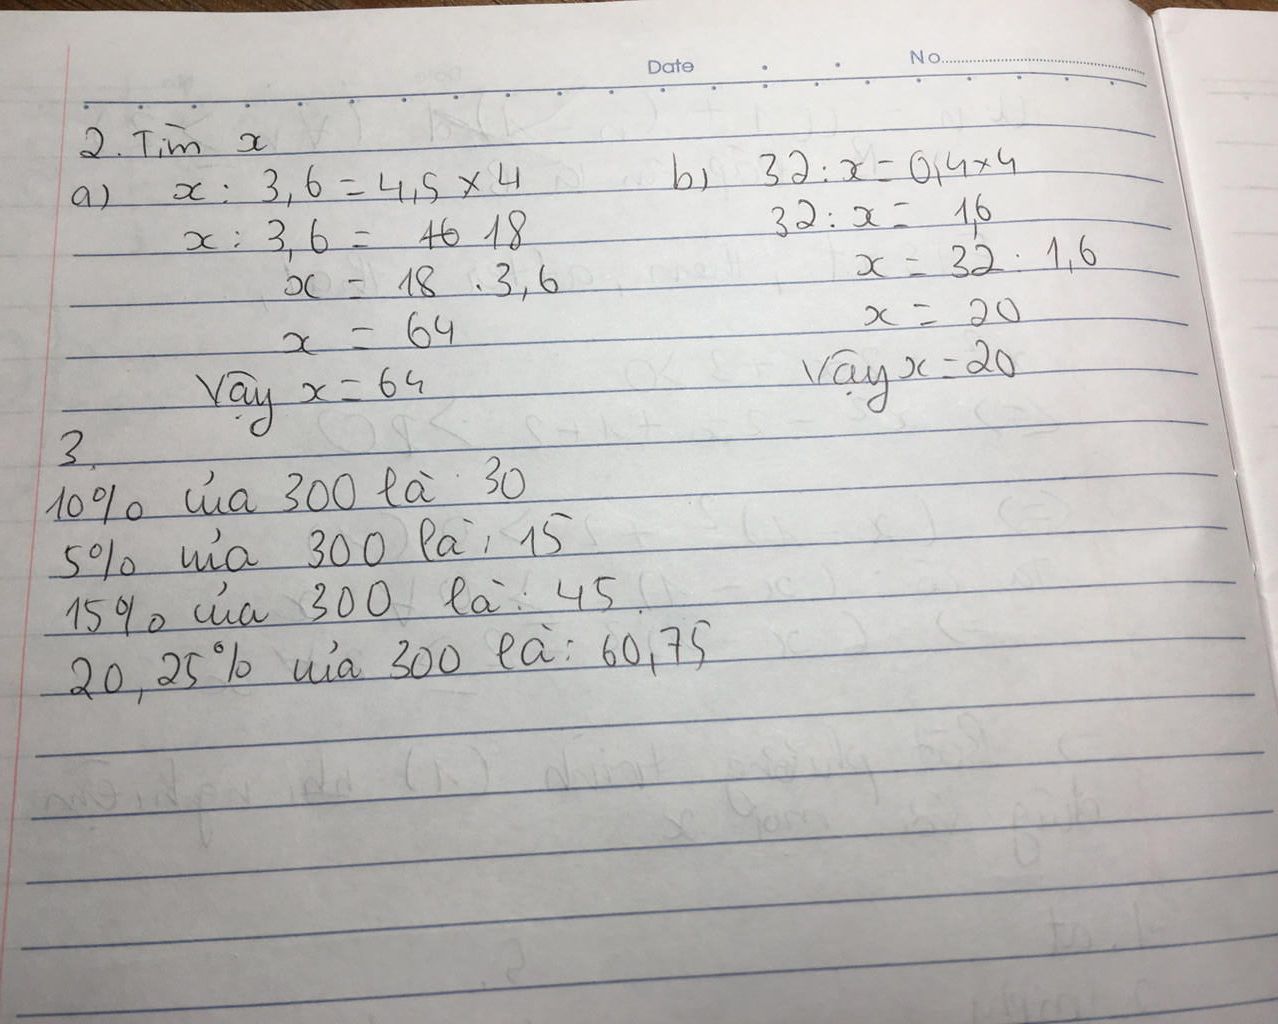 Date No
2. Tìm x
a) x : 3,6 = 4,5 x 4
x : 3,6 = 18
x = 18 . 3,6
x = 64
Vậy x = 64
b) 32 : x = 0,4 x 4
32 : x = 1,6
x = 32 : 1,6
x = 20
Vậy x = 20
3.
10% của 300 là : 30
5% của 300 là : 15
15% của 300 là : 45
20,25% của 300 là : 60,75